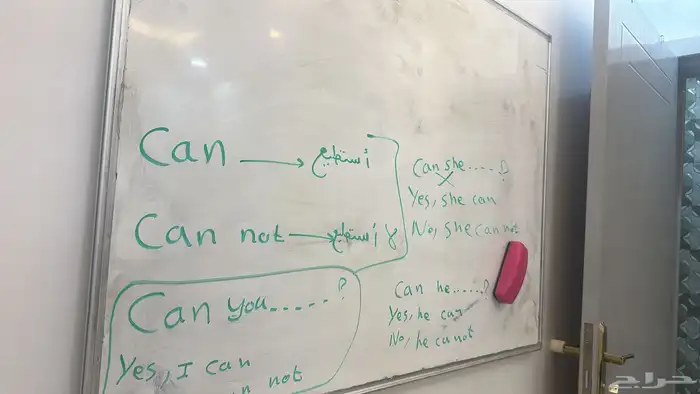 Can → أستطيع
Can not → لا أستطيع
Can you.....?
Yes, I can
not
Can she....?
Yes, she can
No, she can not
Can he......?
Yes, he can
No, he cannot
حراج